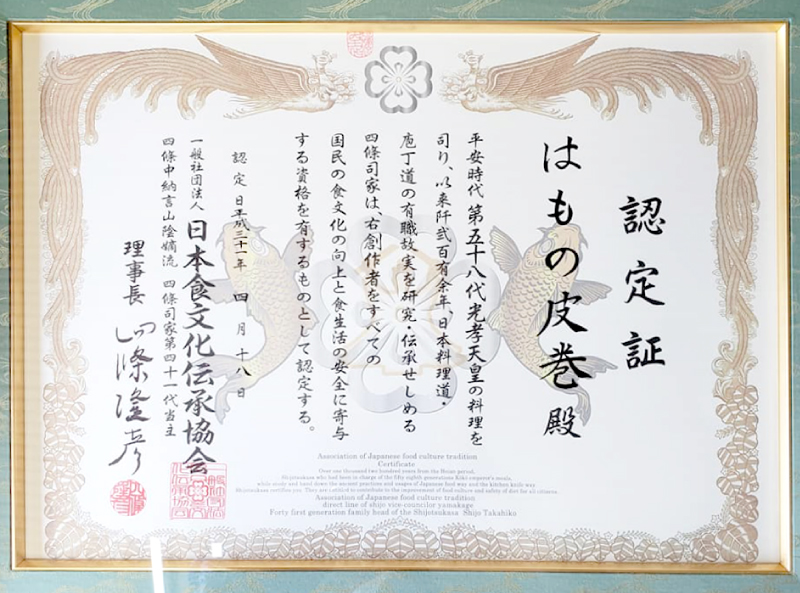 認定証
はもの皮巻 殿
平安時代 第五十八代光孝天皇の料理を
司り、以来阡弐百有余年、日本料理道・
庖丁道の有職故実を研究・伝承せしめる
四條司家は、右創作者をすべての
国民の食文化の向上と食生活の安全に寄与
する資格を有するものとして認定する。
認定日 平成三十一年 四月十八日
一般社団法人 日本食文化伝承協会
四條中納言山陰嫡流 四條司家第四十一代当主
理事長 四條隆彦
Association of Japanese food culture tradition
Certificate
Over one thousand two hundred years from the Heian period,
Shijotsukasa who had been in charge of the fifty eighth generations Kōkō emperor's meals,
while study and hand down the ancient practices and usages of Japanese food way and the kitchen knife way
Shijotsukasa certifies you. They are entitled to contribute to the improvement of food culture and safety of diet for all citizens.
Association of Japanese food culture tradition
direct line of shijo vice councilor yamakage
Forty first generation family head of the Shijotsukasa Shijo Takahiko